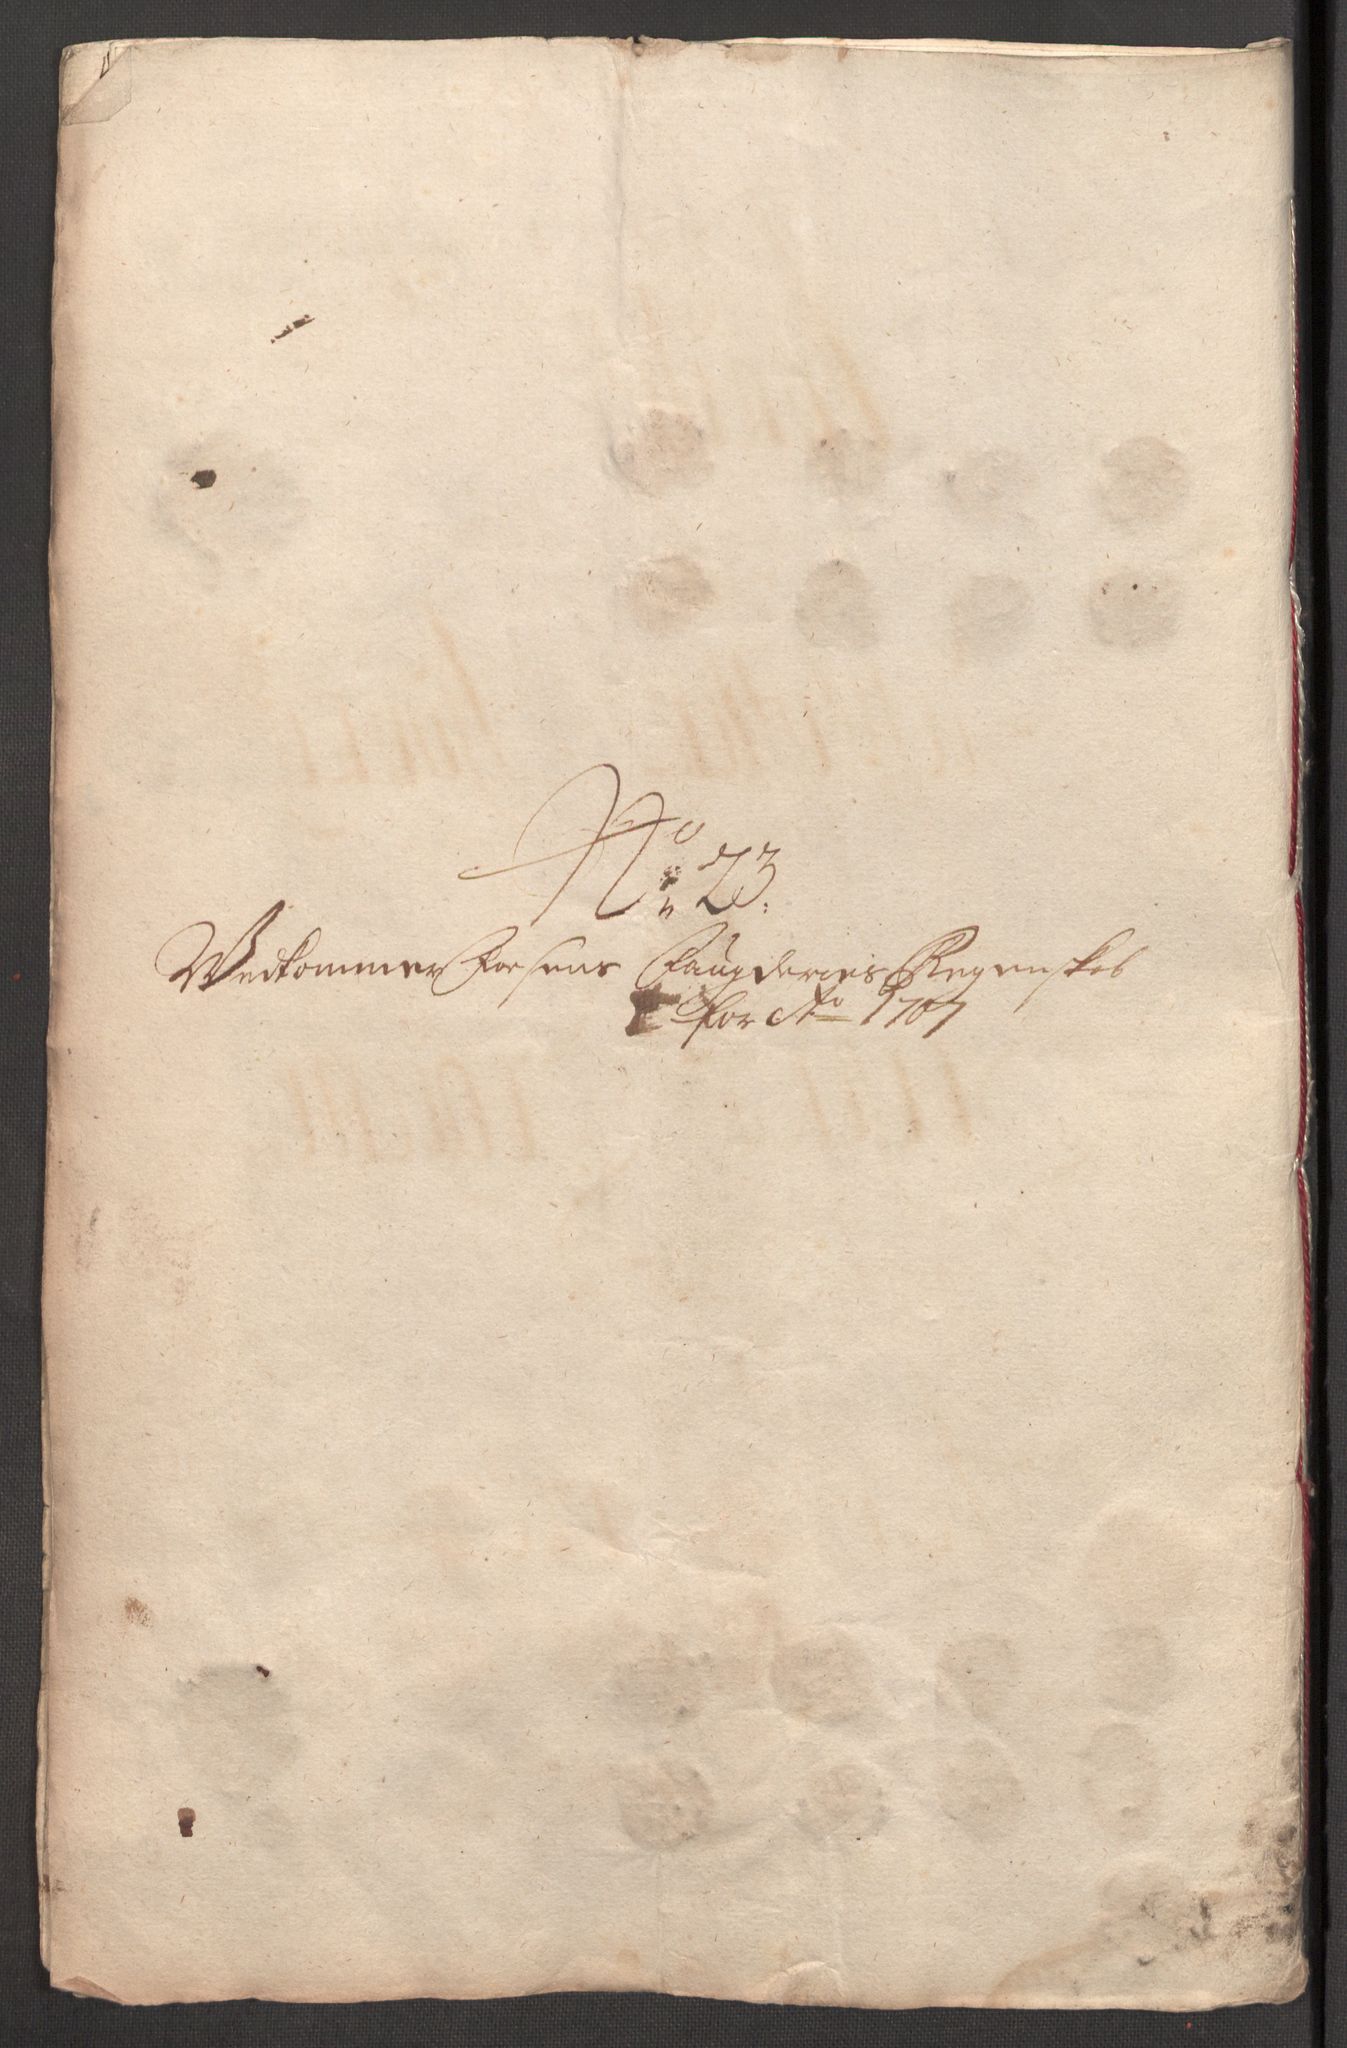 No: 23.
Vedkommer Fosens Fougderies Regenskab
for Ao 1707